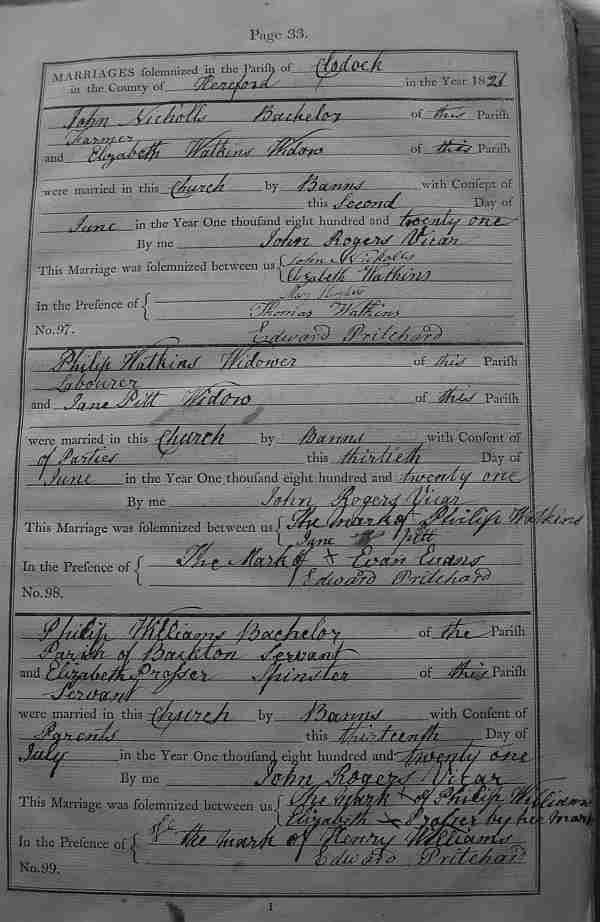 Page 33.
MARRIAGES solemnized in the Parish of Clodock
in the County of Hereford in the Year 1821
John Nicholls Bachelor of this Parish
Farmer
and Elizabeth Watkins Widow of this Parish
were married in this Church by Banns with Consent of
this Second Day of
June in the Year One thousand eight hundred and twenty one
By me John Rogers Vicar
This Marriage was solemnized between us { John Nicholls
Elizabeth Watkins
In the Presence of {
Thomas Watkins
No.97. Edward Pritchard
Philip Watkins Widower of this Parish
Labourer
and Jane Pitt Widow of this Parish
were married in this Church by Banns with Consent of
of Parties this thirtieth Day of
June in the Year One thousand eight hundred and twenty one
By me John Rogers Vicar
This Marriage was solemnized between us { The mark of Philip Watkins
Jane Pitt
In the Presence of { The Mark of + Evan Evans
Edward Pritchard
No.98.
Philip Williams Bachelor of the Parish
Parish of Backton Servant
and Elizabeth Prosser Spinster of this Parish
Servant
were married in this Church by Banns with Consent of
Parents this thirteenth Day of
July in the Year One thousand eight hundred and twenty one
By me John Rogers Vicar
This Marriage was solemnized between us { The mark + of Philip Williams
Elizabeth x Prosser by her mark
In the Presence of { the mark of Henry Williams
Edward Pritchard
No.99.
I